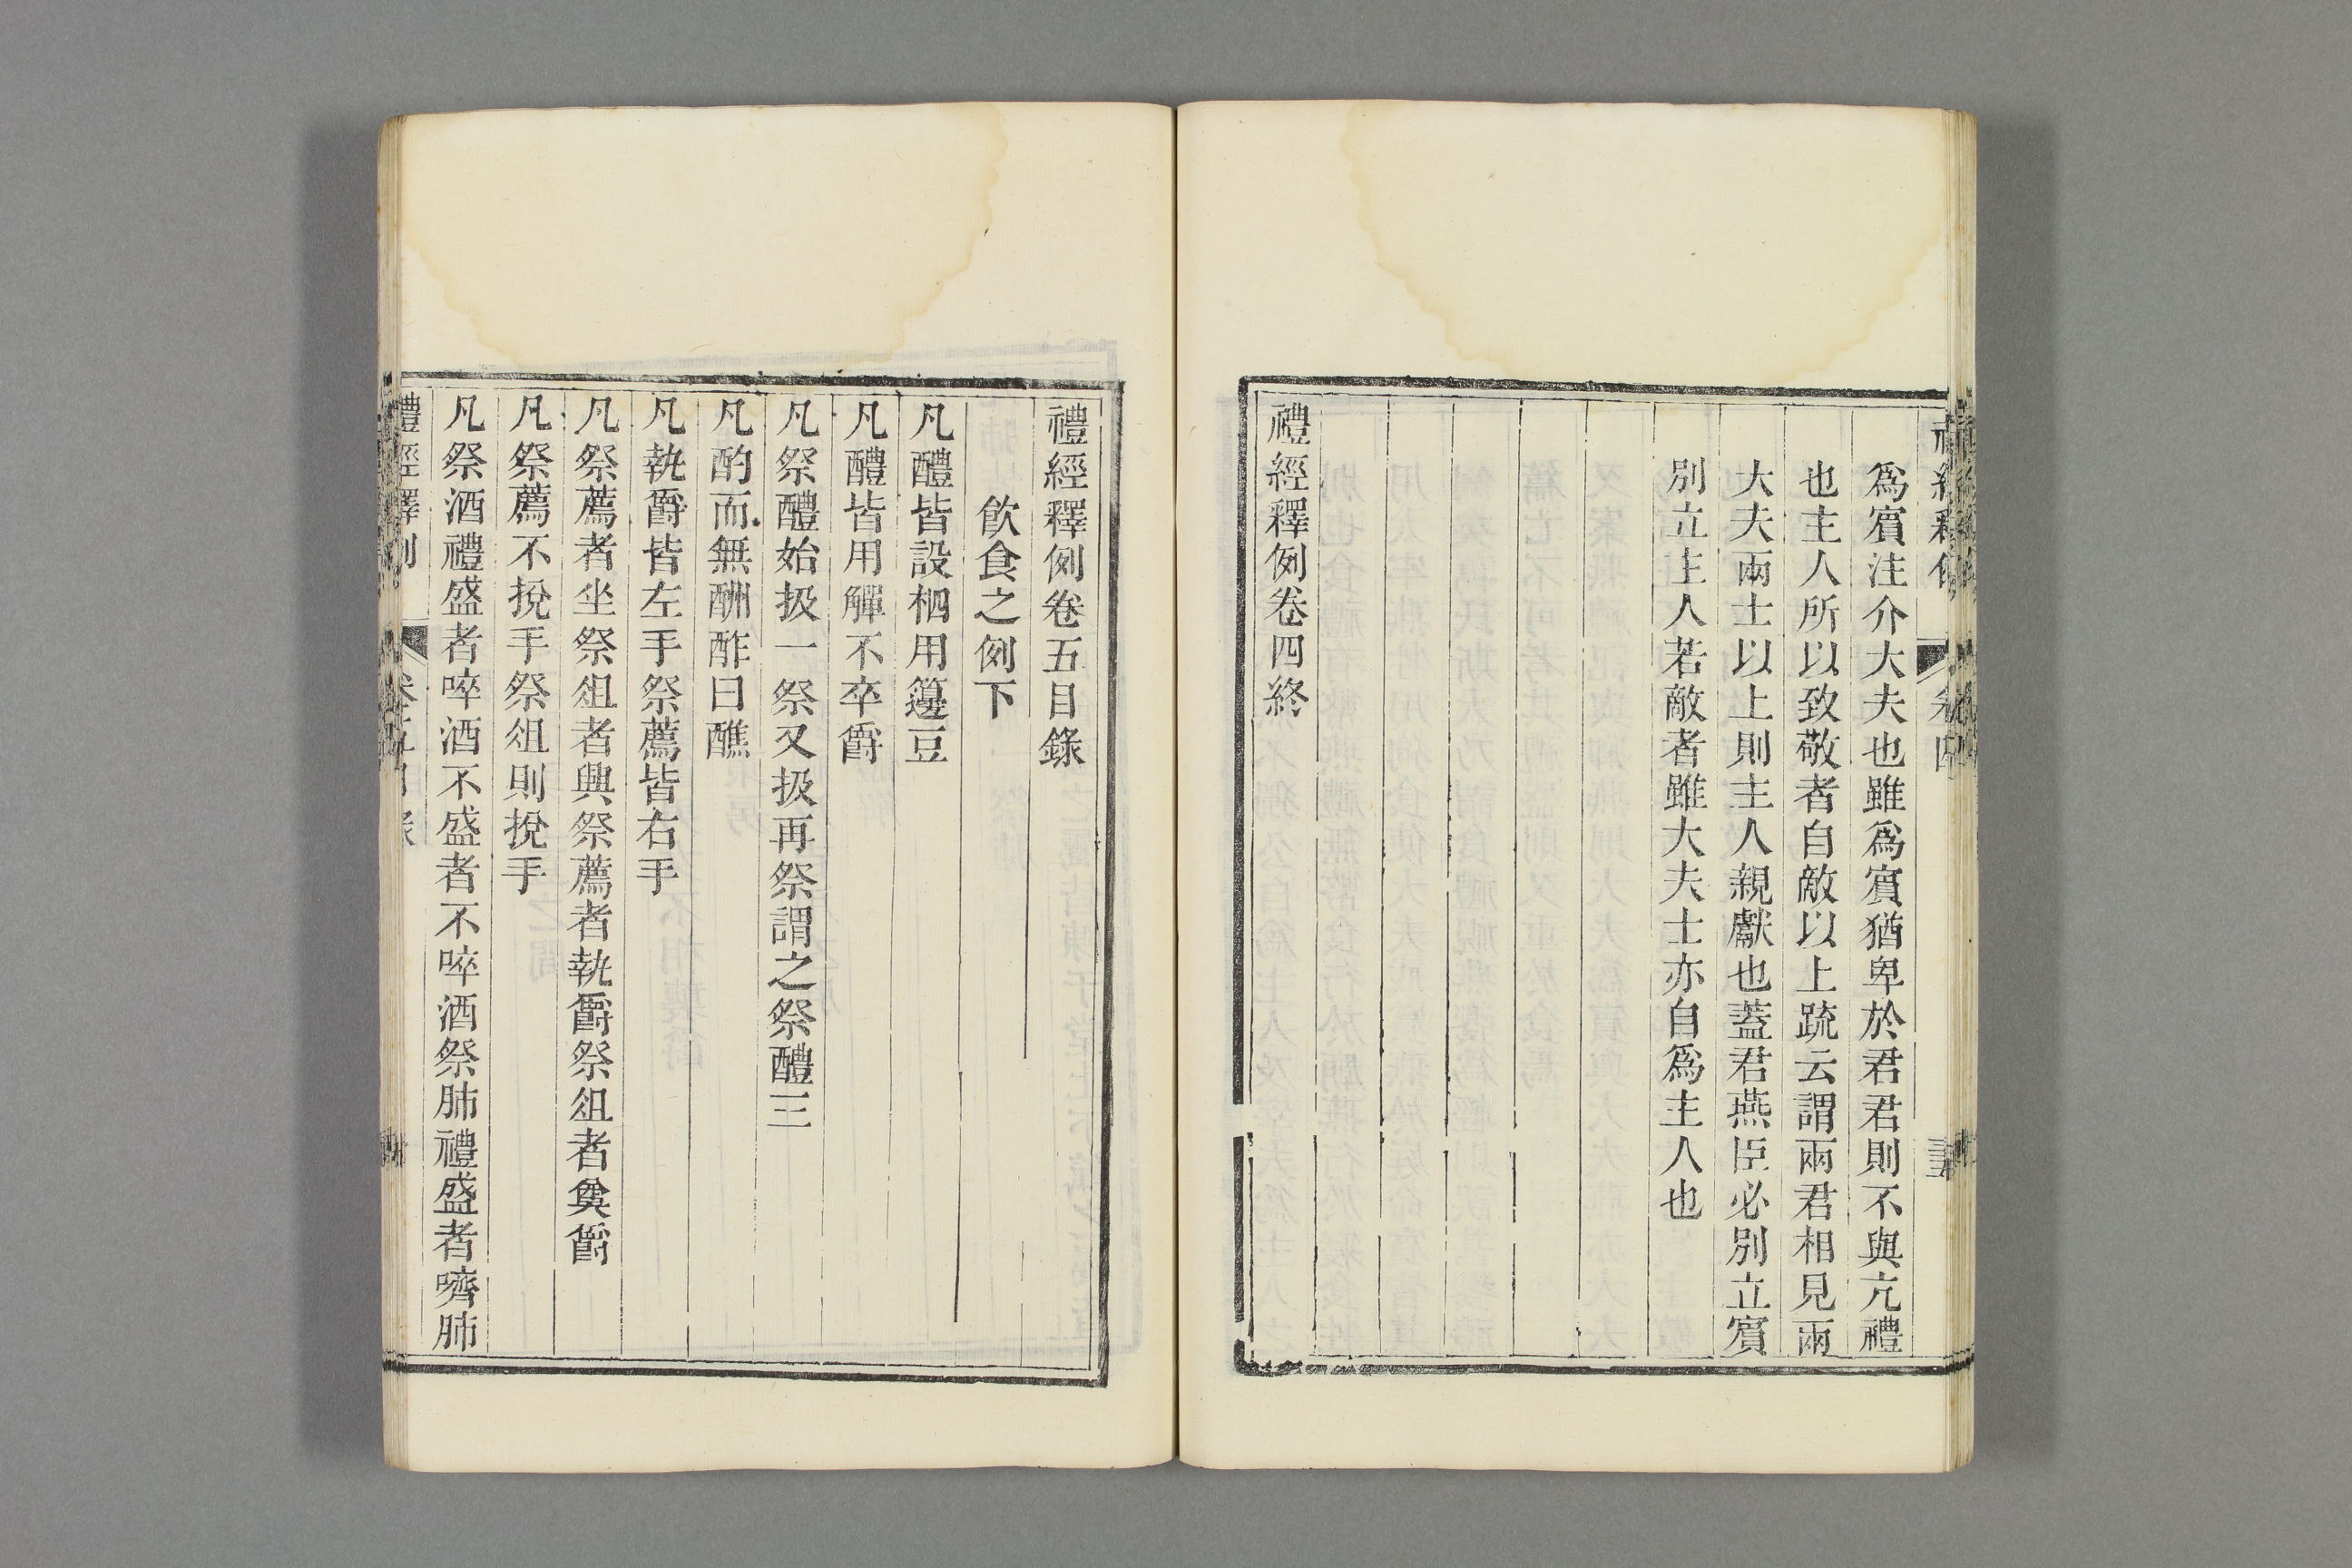 爲賓注介大夫也雖爲賓猶卑於君君則不與亢禮
也主人所以致敬者自敵以上疏云謂兩君相見兩
大夫兩士以上則主人親獻也蓋君燕臣必別立賓
別立主人若敵者雖大夫士亦自爲主人也
禮經釋例卷四終
禮經釋例卷五目錄
飮食之例下
凡醴皆設柶用籩豆
凡醴皆用觶不卒爵
凡祭醴始扱一祭又扱再祭謂之祭醴三
凡酌而無酬酢曰醮
凡執爵皆左手祭薦皆右手
凡祭薦者坐祭俎者興祭薦者執爵祭俎者奠爵
凡祭薦不挩手祭俎則挩手
凡祭酒禮盛者啐酒不盛者不啐酒祭肺禮盛者嚌肺
禮經釋例